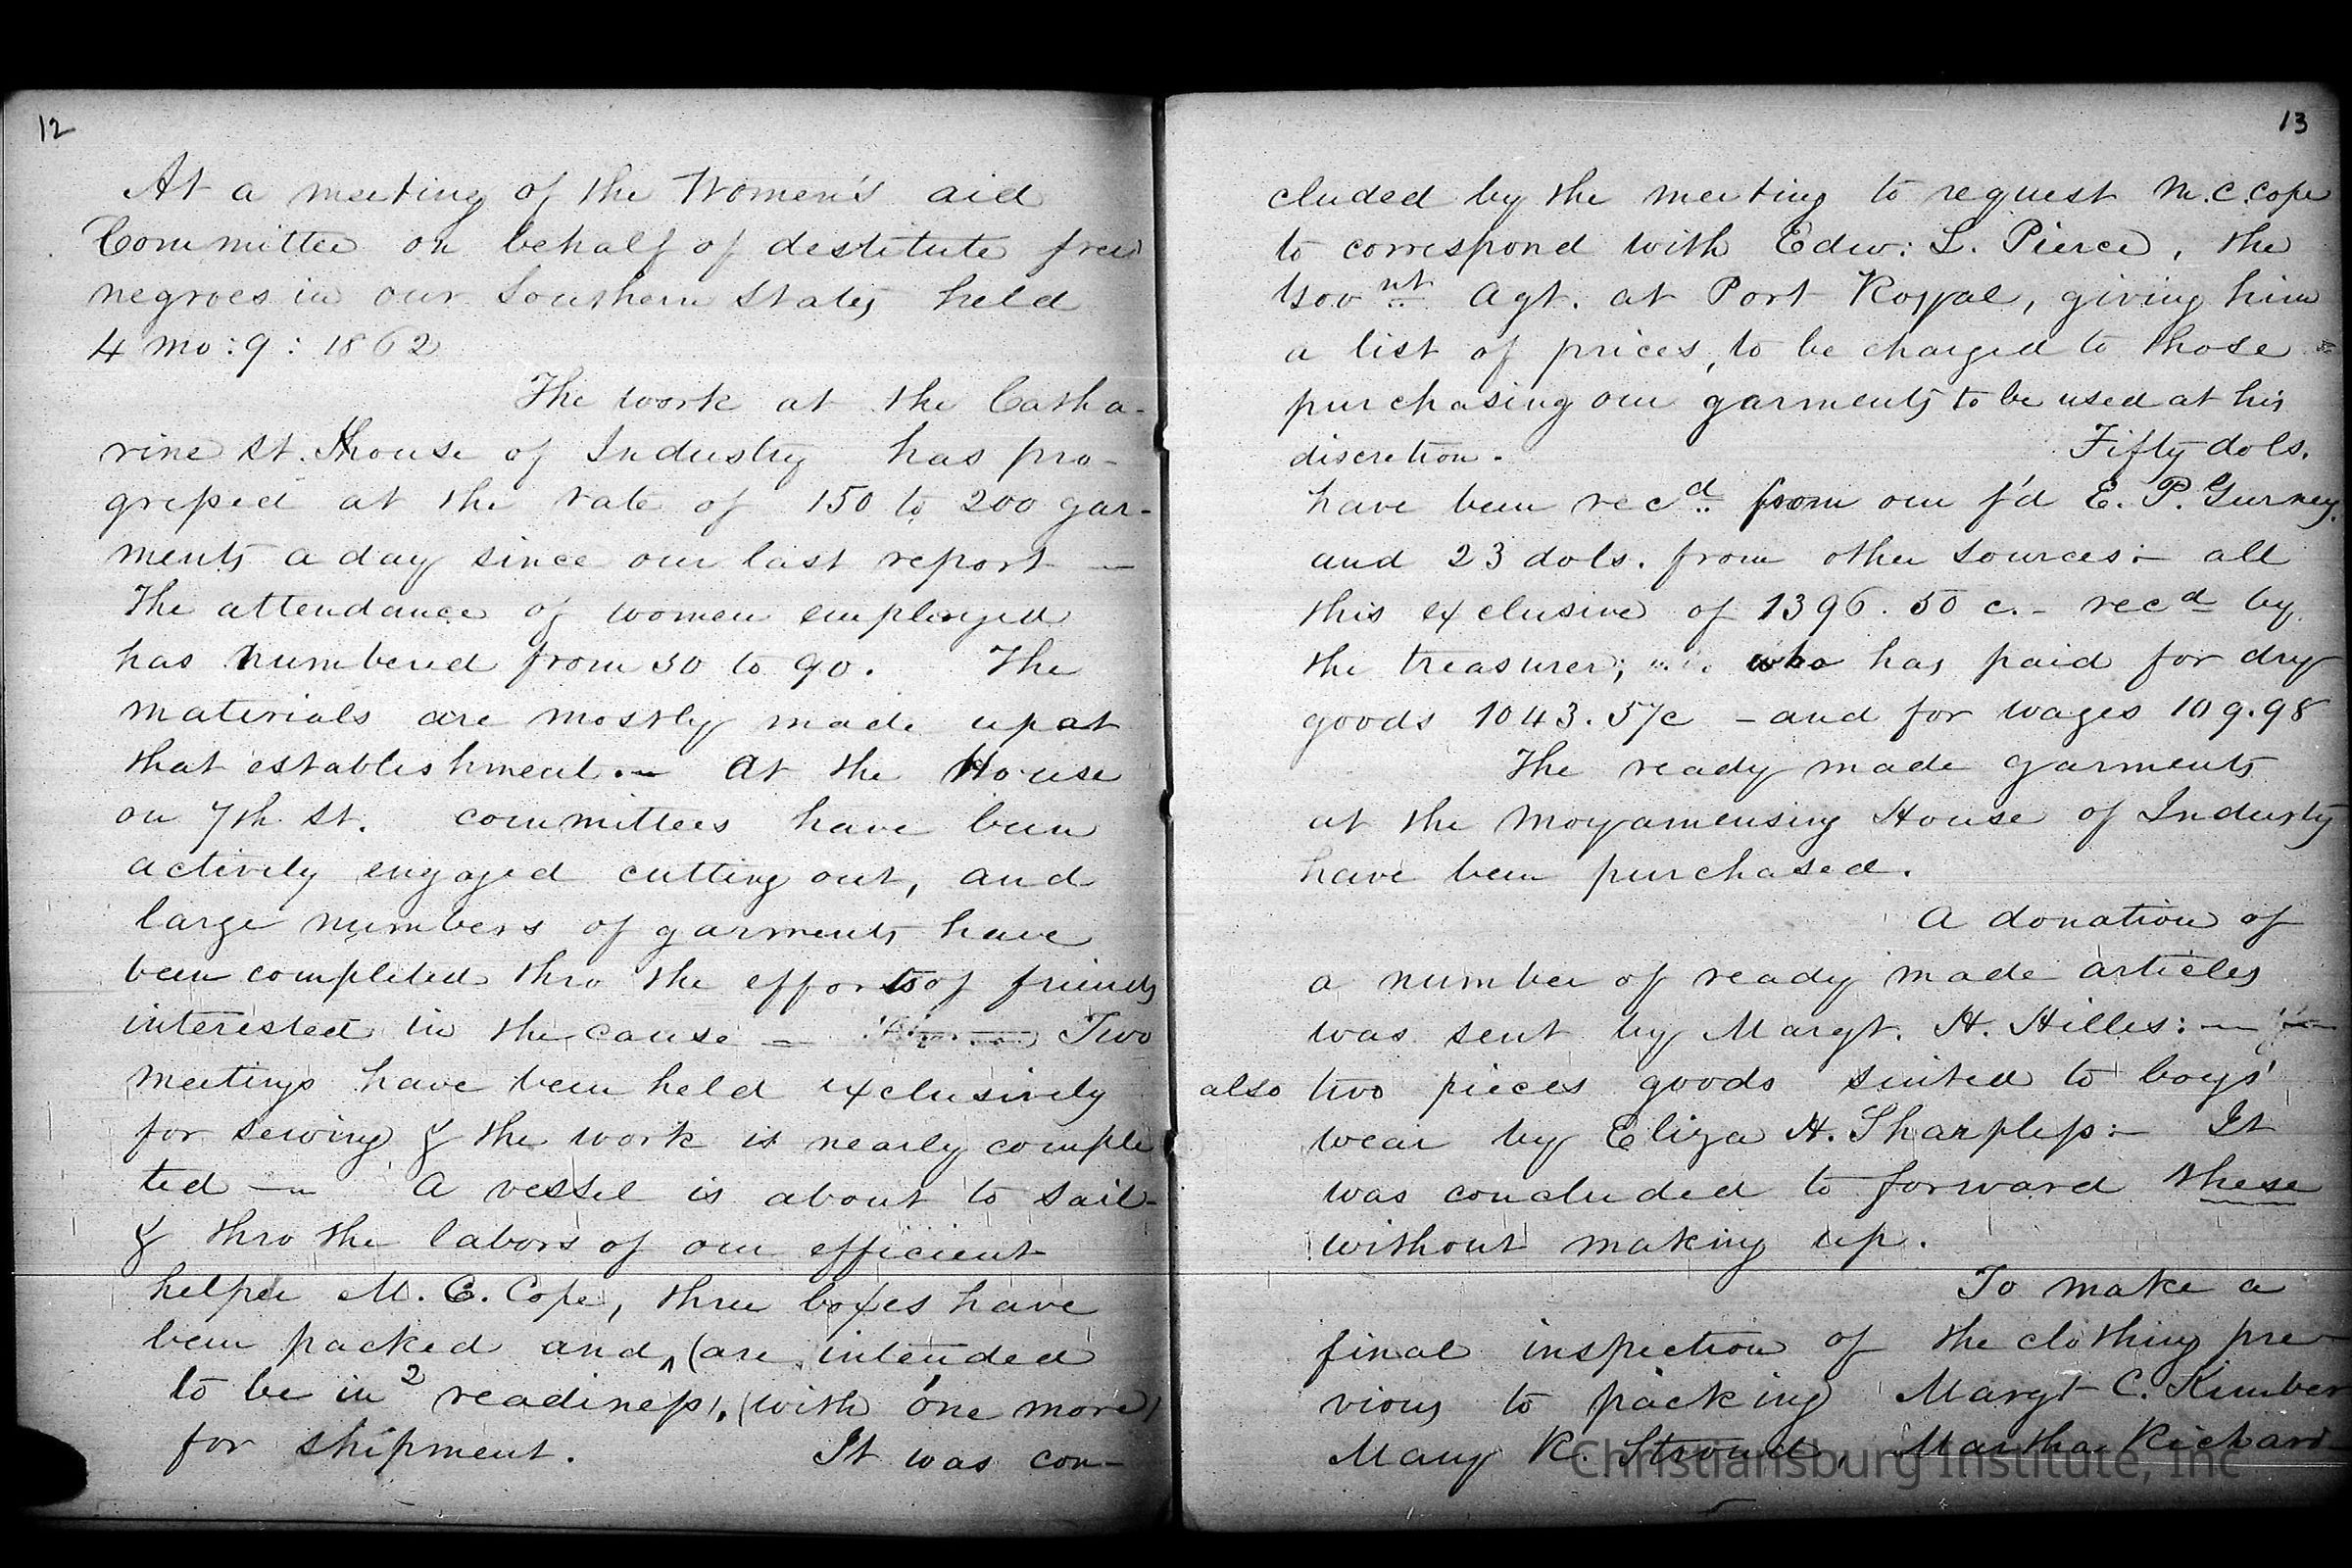 12
At a meeting of the Women's aid
Committee on behalf of destitute free
negroes in our Southern States held
4 mo: 9: 1862
The work at the Catha-
rine St. House of Industry has pro-
gressed at the rate of 150 to 200 gar-
ments a day since our last report —
The attendance of women employed
has numbered from 50 to 90. The
materials are mostly made up at
that establishment. — At the House
on 7th St. committees have been
actively engaged cutting out, and
large numbers of garments have
been completed thro the efforts of friends
interested in the cause — Two
meetings have been held exclusively
for sewing & the work is nearly comple
ted — A vessel is about to sail-
& thro the labors of our efficient
helper M. C. Cope, three boxes have
been packed and, (are intended
to be in 2 readiness), (with one more)
for shipment. It was con-
13
cluded by the meeting to request M.C. Cope
to correspond with Edw: L. Pierce, the
Govnt Agt. at Port Royal, giving him
a list of prices, to be charged to those
purchasing our garments to be used at his
discretion. Fifty dols.
have been recd from our f'd E. P. Gurney,
and 23 dols. from other sources:- all
this exclusive of 1396. 50 c. - recd by
the treasurer; who has paid for dry
goods 1043. 57c - and for wages 109.98
The ready made garments
at the Moyamensing House of Industy
have been purchased.
A donation of
a number of ready made articles
was sent by Margt. H. Hilles: —
also two pieces goods suited to boys'
wear by Eliza H. Sharpless:- It
was concluded to forward these
without making up.
To make a
final inspection of the clothing pre-
vious to packing Margt C. Kimber
Mary K. Stroud, Martha Richard-
Christiansburg Institute, Inc